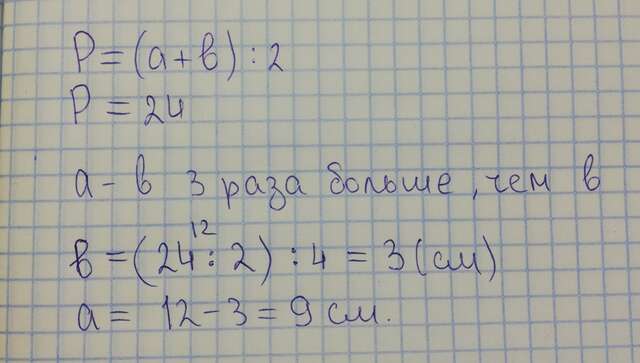 P = (a + в) : 2
P = 24
a - в 3 раза больше, чем в
12
в = (24 : 2) : 4 = 3 (см)
a = 12 - 3 = 9 см.